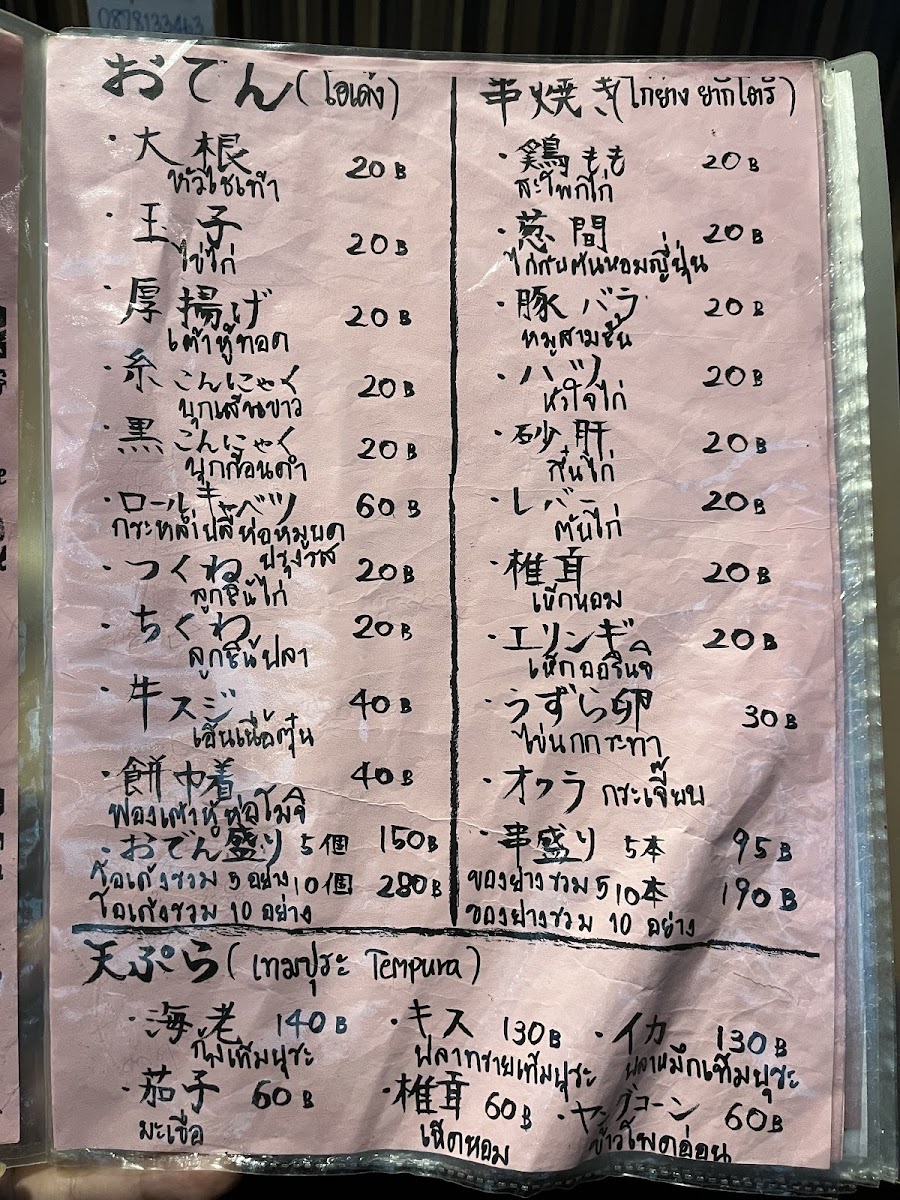 0878133463
おでん (โอเด้ง)
・大根 20 B
หัวไชเท้า
・玉子 20 B
ไข่ไก่
・厚揚げ 20 B
เต้าหู้ทอด
・糸こんにゃく 20 B
บุกเส้นขาว
・黒こんにゃく 20 B
บุกก้อนดำ
・ロールキャベツ 60 B
กระหล่ำปลีห่อหมูบด
ปรุงรส
・つくね 20 B
ลูกชิ้นไก่
・ちくわ 20 B
ลูกชิ้นปลา
・牛スジ 40 B
เอ็นเนื้อตุ๋น
・餅巾着 40 B
ฟองเต้าหู้ห่อโมจิ
・おでん盛り 5個 150 B
โอเด้งรวม 5 อย่าง 10個 280 B
โอเด้งรวม 10 อย่าง
串焼き (ไก่ย่าง ยากิโตริ)
・鶏もも 20 B
สะโพกไก่
・葱間 20 B
ไก่กับต้นหอมญี่ปุ่น
・豚バラ 20 B
หมูสามชั้น
・ハツ 20 B
หัวใจไก่
・砂肝 20 B
กึ๋นไก่
・レバー 20 B
ตับไก่
・椎茸 20 B
เห็ดหอม
・エリンギ 20 B
เห็ดออรินจิ
・うずら卵 30 B
ไข่นกกระทา
・オクラ กระเจี๊ยบ
・串盛り 5本 95 B
ของย่างรวม 5 10本 190 B
ของย่างรวม 10 อย่าง
天ぷら (เทมปุระ Tempura)
・海老 140 B ・キス 130 B ・イカ 130 B
กุ้งเท็มปุระ ปลาทรายเท็มปุระ ปลาหมึกเท็มปุระ
・茄子 60 B ・椎茸 60 B ・ヤングコーン 60 B
มะเขือ เห็ดหอม ข้าวโพดอ่อน